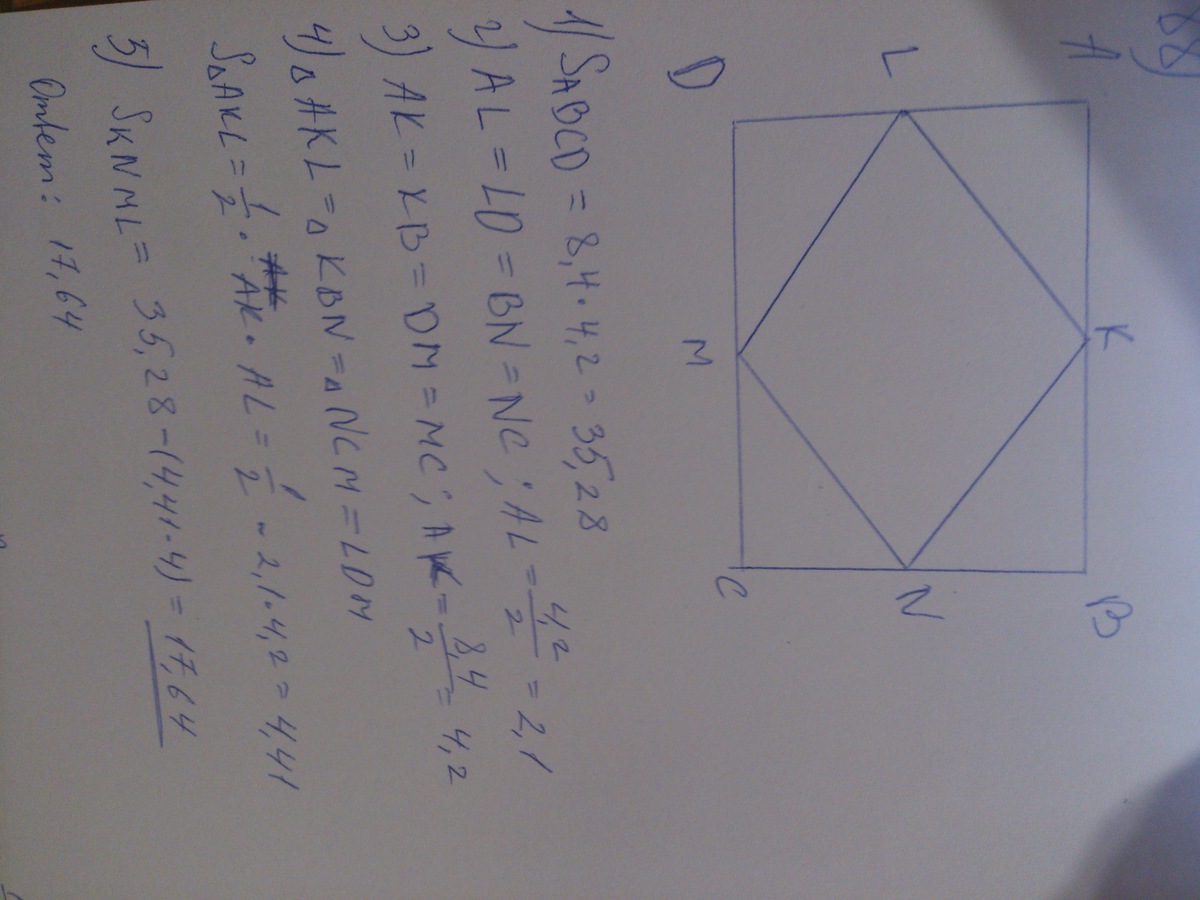 88)
A K B
L N
D M C
1) SABCD = 8,4 · 4,2 = 35,28
2) AL = LD = BN = NC; AL = 4,2/2 = 2,1
3) AK = KB = DM = MC; AK = 8,4/2 = 4,2
4) △AKL = △KBN = △NCM = LDM
S△AKL = 1/2 · AK · AL = 1/2 · 2,1 · 4,2 = 4,41
5) SKNML = 35,28 - (4,41 · 4) = 17,64
Ответ: 17,64